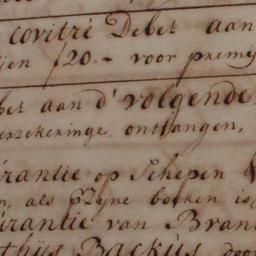 covitré Debet aan
ien ƒ20.- voor premij
bet aan d' volgende
erzekeringe ontfangen,
rantie op Schepen
n, als Zijne boeken is
erantie van Bran
thijs Backus door